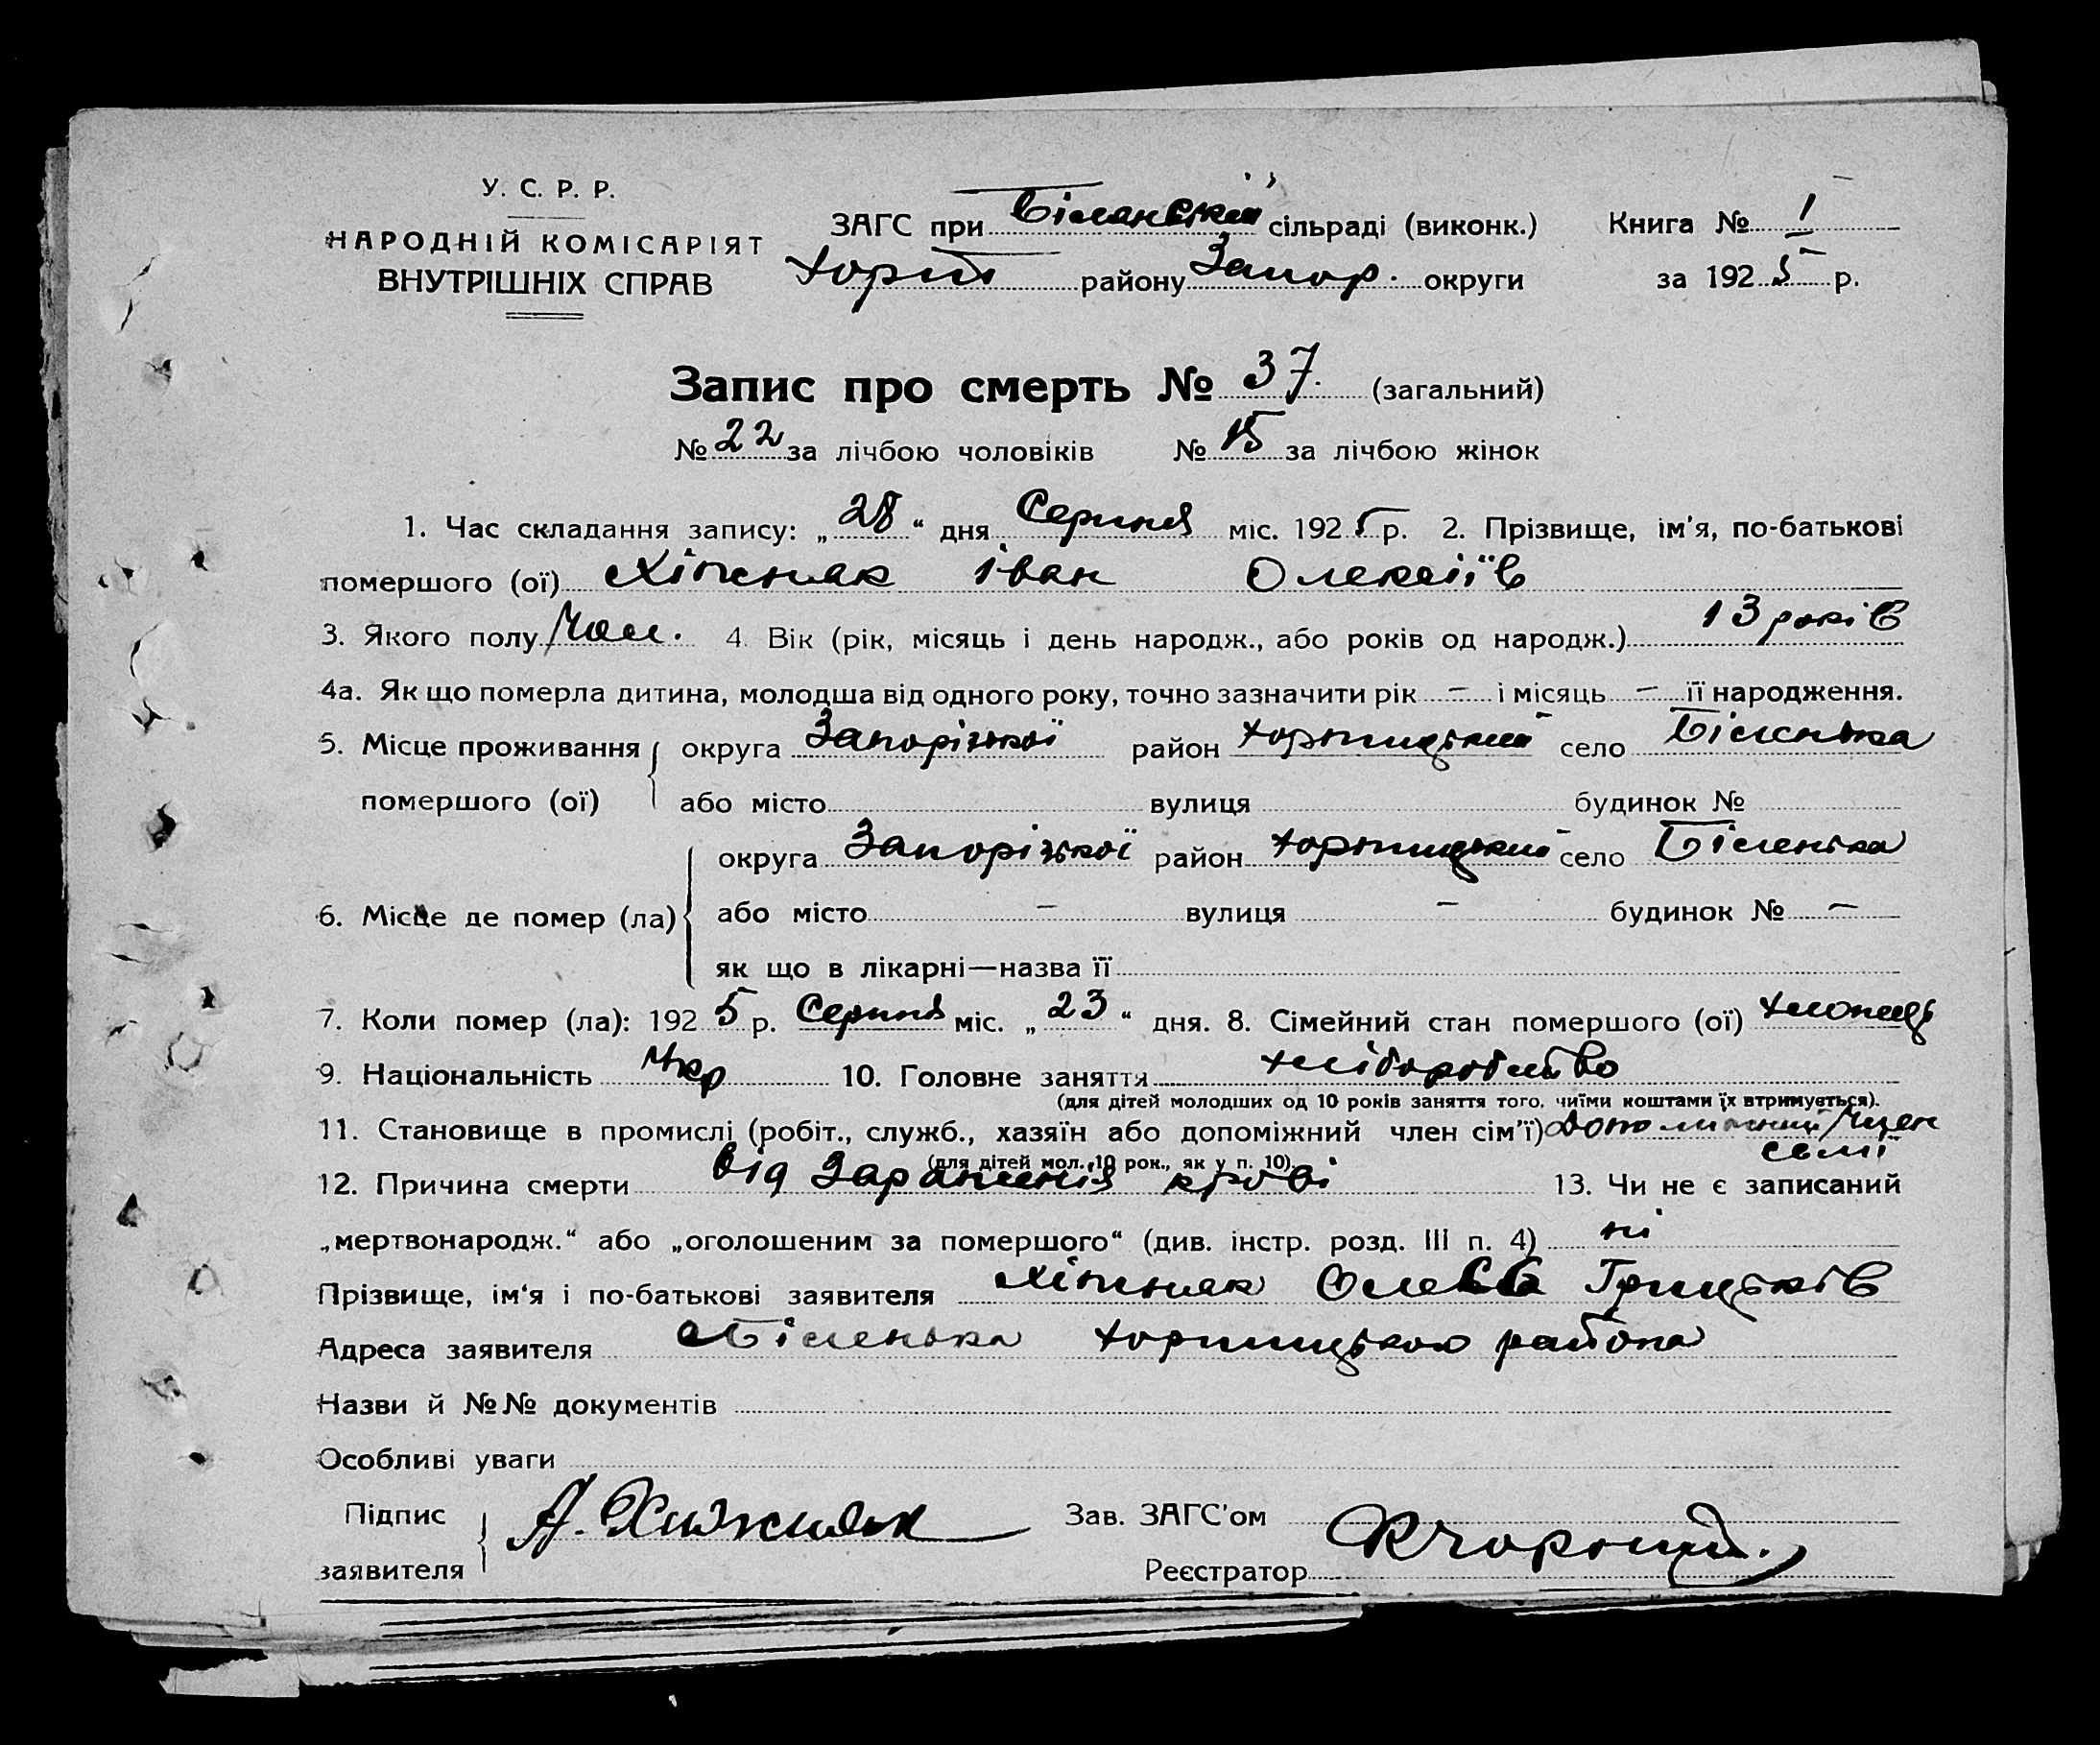 У. С. Р. Р.
НАРОДНІЙ КОМІСАРІЯТ
ВНУТРІШНІХ СПРАВ
ЗАГС при Біленській сільраді (виконк.) Книга № 1
Хорт району Запор. округи за 1925 р.
Запис про смерть № 37. (загальний)
№ 22 за лічбою чоловіків № 15 за лічбою жінок
1. Час складання запису: „28“ дня Серпня міс. 1925 р. 2. Прізвище, ім'я, по-батькові
помершого (ої) Хіжняк Іван Олексіїв
3. Якого полу Чол. 4. Вік (рік, місяць і день народж., або років од народж.) 13 років
4а. Як що померла дитина, молодша від одного року, точно зазначити рік – і місяць – її народження.
5. Місце проживання округа Запорізької район Хортицький село Біленька
помершого (ої) або місто вулиця будинок №
округа Запорізької район Хортицький село Біленька
6. Місце де помер (ла) або місто – вулиця – будинок № –
як що в лікарні—назва її
7. Коли помер (ла): 1925 р. Серпня міс. „23“ дня. 8. Сімейний стан помершого (ої) хлопець
9. Національність Укр 10. Головне заняття хліборобство
(для дітей молодших од 10 років заняття того, чиїми коштами їх втримується).
11. Становище в промислі (робіт., служб., хазяїн або допоміжний член сім'ї) Допоміжний Член
семї
(для дітей мол. 10 рок., як у п. 10).
12. Причина смерти від Зараження крові 13. Чи не є записаний
„мертвонародж.“ або „оголошеним за помершого“ (див. інстр. розд. III п. 4) ні
Прізвище, ім'я і по-батькові заявителя Хіжняк Грицьків
Адреса заявителя с Біленька Хортицького района
Назви й №№ документів
Особливі уваги
Підпис
заявителя А. Хижняк
Зав. ЗАГС'ом
Реєстратор